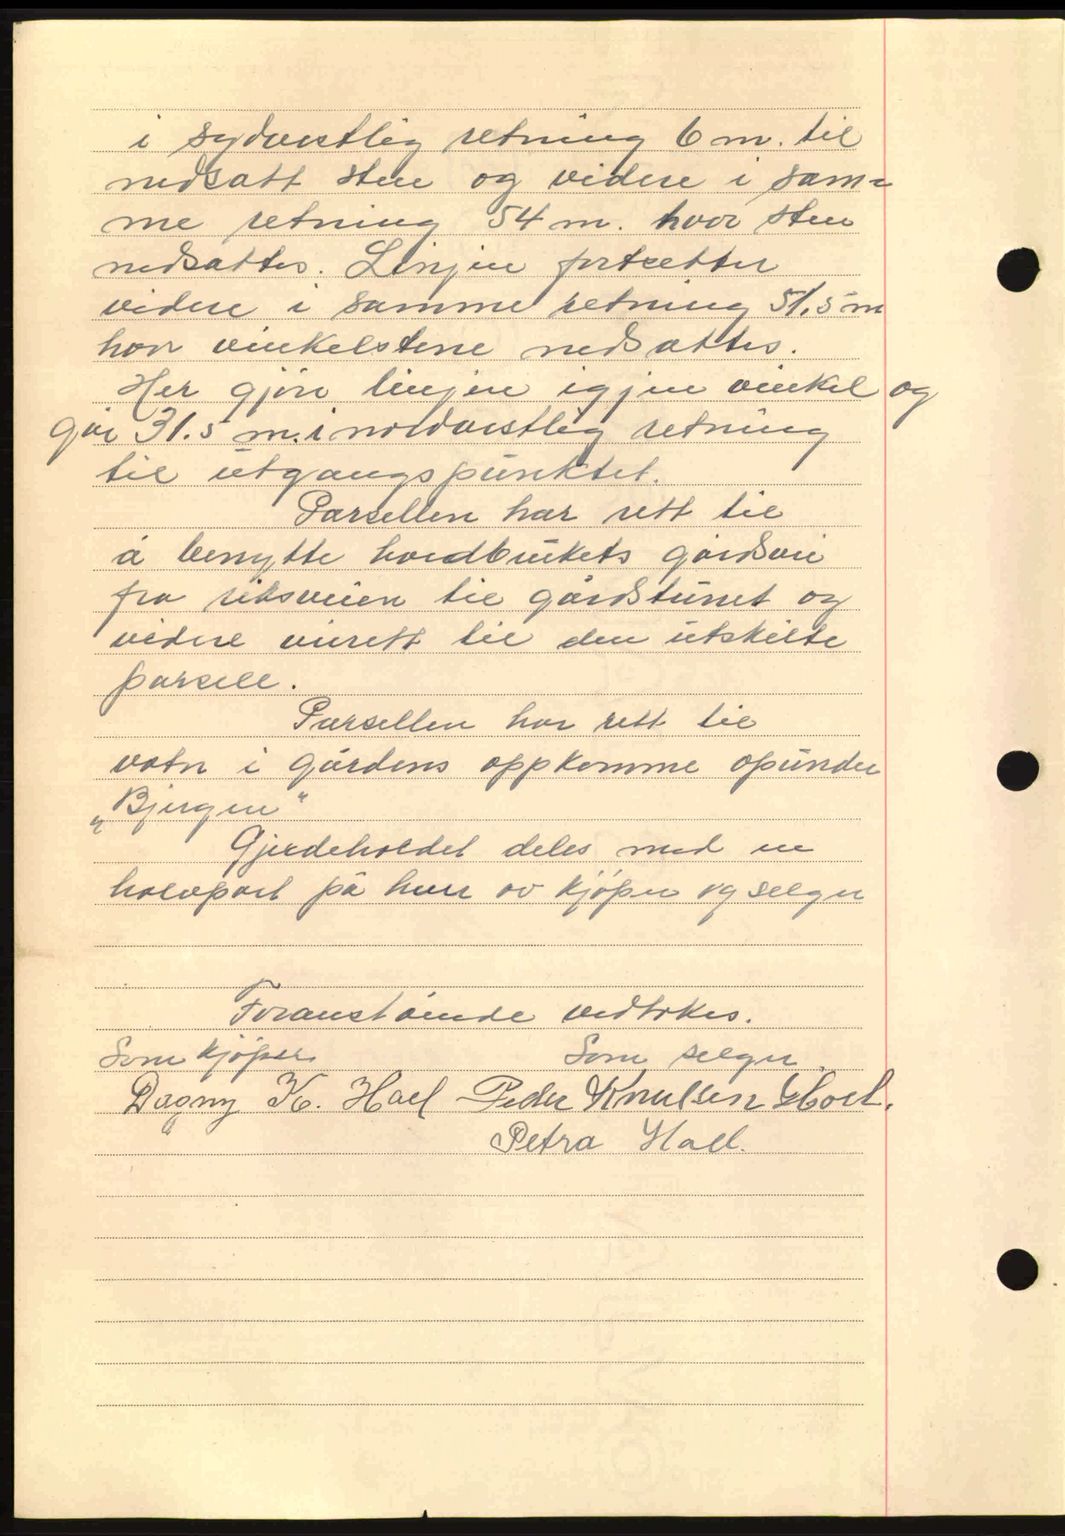 i sydvestlig retning 6 m. til
nedsatt sten og videre i sam=
me retning 54 m. hvor sten
nedsattes. Linjen fortsetter
videre i samme retning 51,5 m
hvor vinkelstene nedsattes.
Her gjör linjen igjen vinkel og
går 31.5 m. i nordvestlig retning
til utgangspunktet.
Parsellen har rett til
å benytte hovedbrukets gårdsvei
fra riksveien til gårdstunet og
videre veirett til den utskilte
parsell.
Parsellen har rett til
vatn i gårdens oppkomme opunder
„Bjergen"
Gjerdeholdet deles med en
halvpart på hver av kjöper og selger
Foranstående vedtokes.
Som kjöper Som selger.
Dagny K. Hoel Peder Knutsen Hoel.
Petra Hoel.